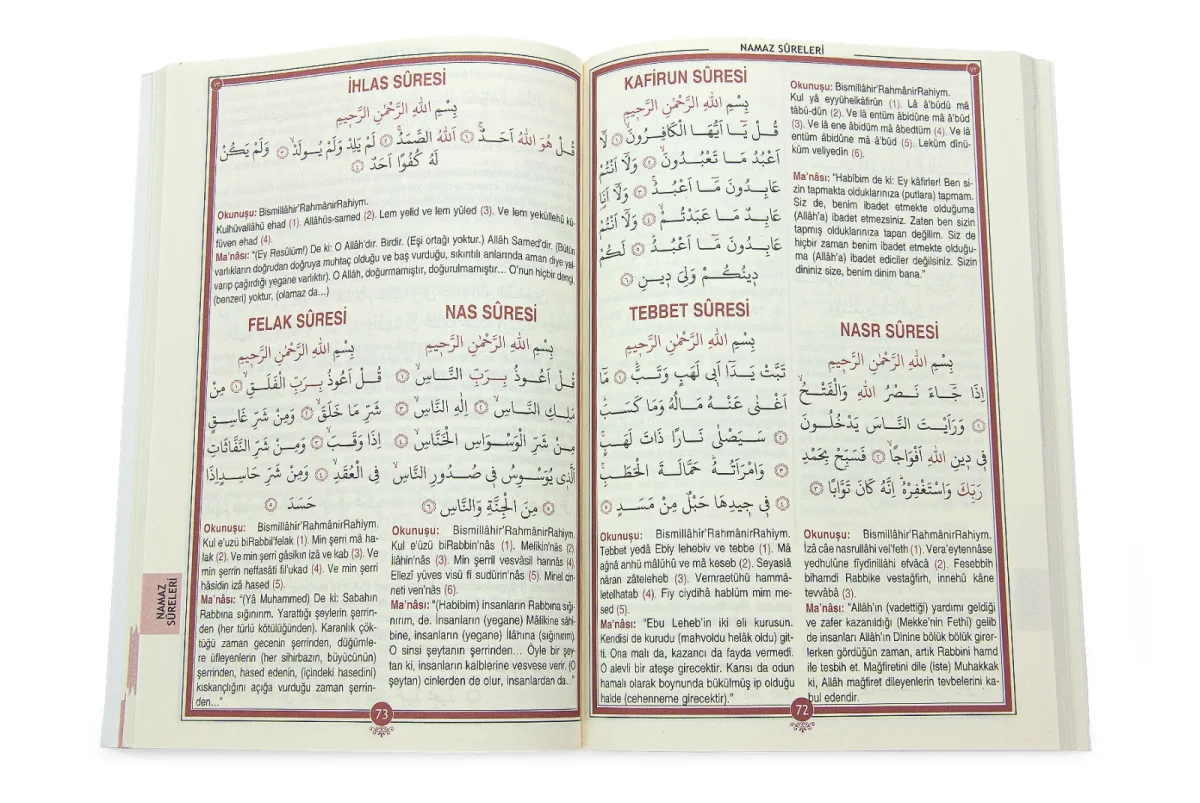 NAMAZ SÛRELERİ
٧٢
KAFİRUN SÛRESİ
بِسْمِ اللهِ الرَّحْمٰنِ الرَّحٖيمِ
قُلْ يَٓا اَيُّهَا الْكَافِرُونَۙ ﴿١﴾ لَٓا
اَعْبُدُ مَا تَعْبُدُونَۙ ﴿٢﴾ وَلَٓا اَنْتُمْ
عَابِدُونَ مَٓا اَعْبُدُۚ ﴿٣﴾ وَلَٓا اَنَا
عَابِدٌ مَا عَبَدْتُمْۙ ﴿٤﴾ وَلَٓا اَنْتُمْ
عَابِدُونَ مَٓا اَعْبُدُۜ ﴿٥﴾ لَكُمْ
دٖينُكُمْ وَلِىَ دٖينِ ﴿٦﴾
Okunuşu: Bismillâhir'RahmânirRahiym.
Kul yâ eyyühelkâfirûn (1). Lâ â'büdü mâ
tâbü-dûn (2). Ve lâ entüm âbidûne mâ â'büd
(3). Ve lâ ene âbidüm mâ âbedtüm (4). Ve lâ
entüm âbidûne mâ â'bûd (5). Leküm dinü-
küm veliyedin (6).
Ma'nâsı: "Habibim de ki: Ey kâfirler! Ben si-
zin tapmakta olduklarınıza (putlara) tapmam.
Siz de, benim ibadet etmekte olduğuma
(Allâh'a) ibadet etmezsiniz. Zaten ben sizin
tapmış olduklarınıza tapan değilim. Siz de
hiçbir zaman benim ibadet etmekte olduğu-
ma (Allâh'a) ibadet ediciler değilsiniz. Sizin
dininiz size, benim dinim bana."
TEBBET SÛRESİ
بِسْمِ اللهِ الرَّحْمٰنِ الرَّحٖيمِ
تَبَّتْ يَدَٓا اَبٖى لَهَبٍ وَتَبَّۜ ﴿١﴾ مَٓا
اَغْنٰى عَنْهُ مَالُهُ وَمَا كَسَبَۜ
﴿٢﴾ سَيَصْلٰى نَارًا ذَاتَ لَهَبٍۚ
﴿٣﴾ وَامْرَاَتُهُۜ حَمَّالَةَ الْحَطَبِۚ
﴿٤﴾ فٖى جٖيدِهَا حَبْلٌ مِنْ مَسَدٍ ﴿٥﴾
Okunuşu: Bismillâhir'RahmânirRahiym.
Tebbet yedâ Ebiy lehebiv ve tebbe (1). Mâ
ağnâ anhü mâlühû ve mâ keseb (2). Seyaslâ
nâran zâteleheb (3). Vemraetühû hammâ-
letelhatab (4). Fiy ciydihâ hablüm mim me-
sed (5).
Ma'nâsı: "Ebu Leheb'in iki eli kurusun.
Kendisi de kurudu (mahvoldu helâk oldu) git-
ti. Ona malı da, kazancı da fayda vermedi.
O alevli bir ateşe girecektir. Karısı da odun
hamalı olarak boynunda bükülmüş ip olduğu
halde (cehenneme girecektir)."
NASR SÛRESİ
بِسْمِ اللهِ الرَّحْمٰنِ الرَّحٖيمِ
اِذَا جَٓاءَ نَصْرُ اللهِ وَالْفَتْحُۙ
﴿١﴾ وَرَاَيْتَ النَّاسَ يَدْخُلُونَ
فٖى دٖينِ اللهِ اَفْوَاجًاۙ ﴿٢﴾ فَسَبِّحْ بِحَمْدِ
رَبِّكَ وَاسْتَغْفِرْهُۜ اِنَّهُ كَانَ تَوَّابًا ﴿٣﴾
Okunuşu: Bismillâhir'RahmânirRahiym.
İzâ câe nasrullâhi vel'feth (1). Vera'eytennâse
yedhulûne fiydinillâhi efvâcâ (2). Fesebbih
bihamdi Rabbike vestağfirh, innehû kâne
tevvâbâ (3).
Ma'nâsı: "Allâh'ın (vadettiği) yardımı geldiği
ve zafer kazanıldığı (Mekke'nin Fethi) gelib
de insanları Allâh'ın Dinine bölük bölük girer-
lerken gördüğün zaman, artık Rabbini hamd
ile tesbih et. Mağfiretini dile (iste) Muhakkak
ki, Allâh mağfiret dileyenlerin tevbelerini ka-
bul edendir.
72
٧٣
İHLAS SÛRESİ
بِسْمِ اللهِ الرَّحْمٰنِ الرَّحٖيمِ
قُلْ هُوَ اللهُ اَحَدٌۚ ﴿١﴾ اَللهُ الصَّمَدُۚ ﴿٢﴾ لَمْ يَلِدْ وَلَمْ يُولَدْۙ ﴿٣﴾ وَلَمْ يَكُنْ
لَهُ كُفُوًا اَحَدٌ ﴿٤﴾
Okunuşu: Bismillâhir'RahmânirRahiym.
Kulhüvallâhü ehad (1). Allâhüs-samed (2). Lem yelid ve lem yûled (3). Ve lem yeküllehü kü-
füven ehad (4).
Ma'nâsı: "(Ey Resûlüm!) De ki: O Allâh'dır. Birdir. (Eşi ortağı yoktur.) Allâh Samed'dir. (Bütün
varlıkların doğrudan doğruya muhtaç olduğu ve baş vurduğu, sıkıntılı anlarında aman diye yal-
varıp çağırdığı yegane varlıktır). O Allâh, doğurmamıştır, doğurulmamıştır... O'nun hiçbir dengi,
(benzeri) yoktur, (olamaz da...)
FELAK SÛRESİ
بِسْمِ اللهِ الرَّحْمٰنِ الرَّحٖيمِ
قُلْ اَعُوذُ بِرَبِّ الْفَلَقِۙ ﴿١﴾ مِنْ
شَرِّ مَا خَلَقَۙ ﴿٢﴾ وَمِنْ شَرِّ غَاسِقٍ
اِذَا وَقَبَۙ ﴿٣﴾ وَمِنْ شَرِّ النَّفَّاثَاتِ
فِى الْعُقَدِۙ ﴿٤﴾ وَمِنْ شَرِّ حَاسِدٍ اِذَا
حَسَدَ ﴿٥﴾
Okunuşu: Bismillâhir'RahmânirRahiym.
Kul e'uzü biRabbil'felak (1). Min şerri mâ ha-
lak (2). Ve min şerri gâsikın izâ ve kab (3). Ve
min şerrin neffasâti fil'ukad (4). Ve min şerri
hâsidin izâ hased (5).
Ma'nâsı: "(Yâ Muhammed) De ki: Sabahın
Rabbına sığınırım. Yarattığı şeylerin şerrin-
den (her türlü kötülüğünden). Karanlık çök-
tüğü zaman gecenin şerrinden, düğümle-
re üfleyenlerin (her sihirbazın, büyücünün)
şerrinden, hased edenin, (içindeki hasedini)
kıskançlığını açığa vurduğu zaman şerrin-
den..."
NAS SÛRESİ
بِسْمِ اللهِ الرَّحْمٰنِ الرَّحٖيمِ
قُلْ اَعُوذُ بِرَبِّ النَّاسِۙ ﴿١﴾
مَلِكِ النَّاسِۙ ﴿٢﴾ اِلٰهِ النَّاسِۙ ﴿٣﴾
مِنْ شَرِّ الْوَسْوَاسِ الْخَنَّاسِۙ ﴿٤﴾
اَلَّذٖى يُوَسْوِسُ فٖى صُدُورِ النَّاسِۙ
﴿٥﴾ مِنَ الْجِنَّةِ وَالنَّاسِ ﴿٦﴾
Okunuşu: Bismillâhir'RahmânirRahiym.
Kul e'ûzü biRabbin'nâs (1). Melikin'nâs (2).
İlâhin'nâs (3). Min şerril vesvâsil hannâs (4).
Ellezî yüves visü fî sudûrin'nâs (5). Minel cin-
neti ven'nâs (6).
Ma'nâsı: "(Habibim) insanların Rabbına sığı-
nırım, de. İnsanların (yegane) Mâlikine sâhi-
bine, insanların (yegane) İlâhına (sığınırım).
O sinsi şeytanın şerrinden... Öyle bir şey-
tan ki, insanların kalblerine vesvese verir. (O
şeytan) cinlerden de olur, insanlardan da..."
NAMAZ
SÛRELERİ
73